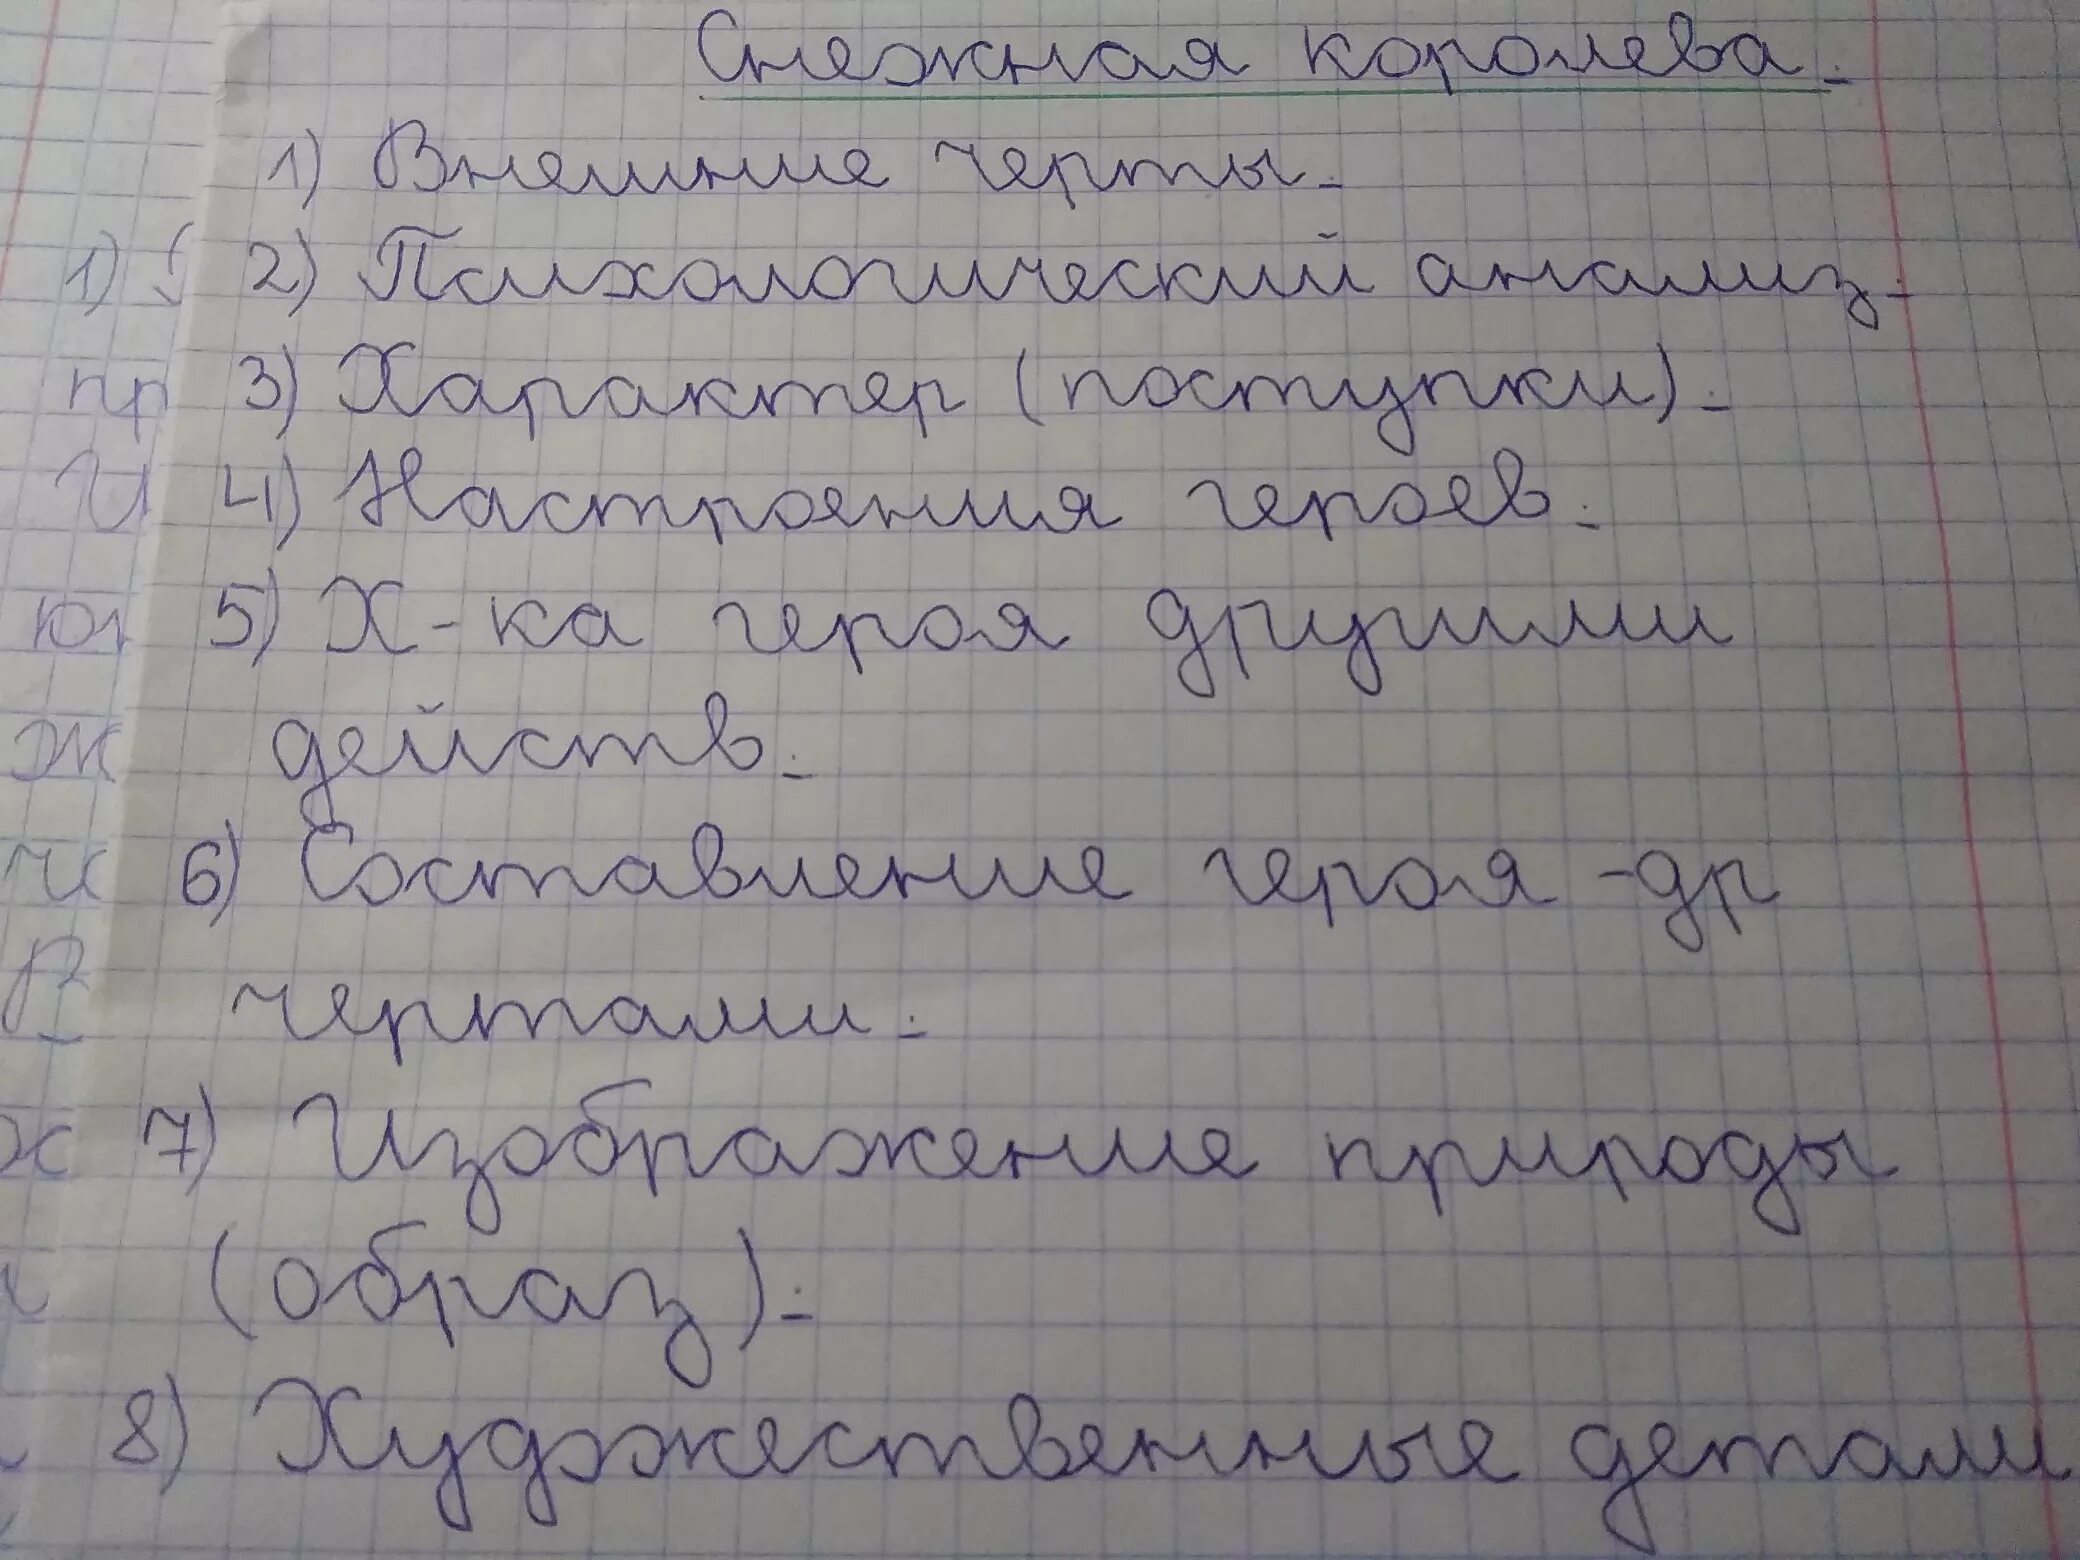 Снежная королева.
1) Внешние черты.
1) 2) Психологический анализ.
пр 3) Характер (поступки).
И 4) Настроения героев.
5) Х-ка героя другими
ж действ.
6) Составление героя -др
В чертами.
7) Изображение природы
(образ).
8) Художественные детали